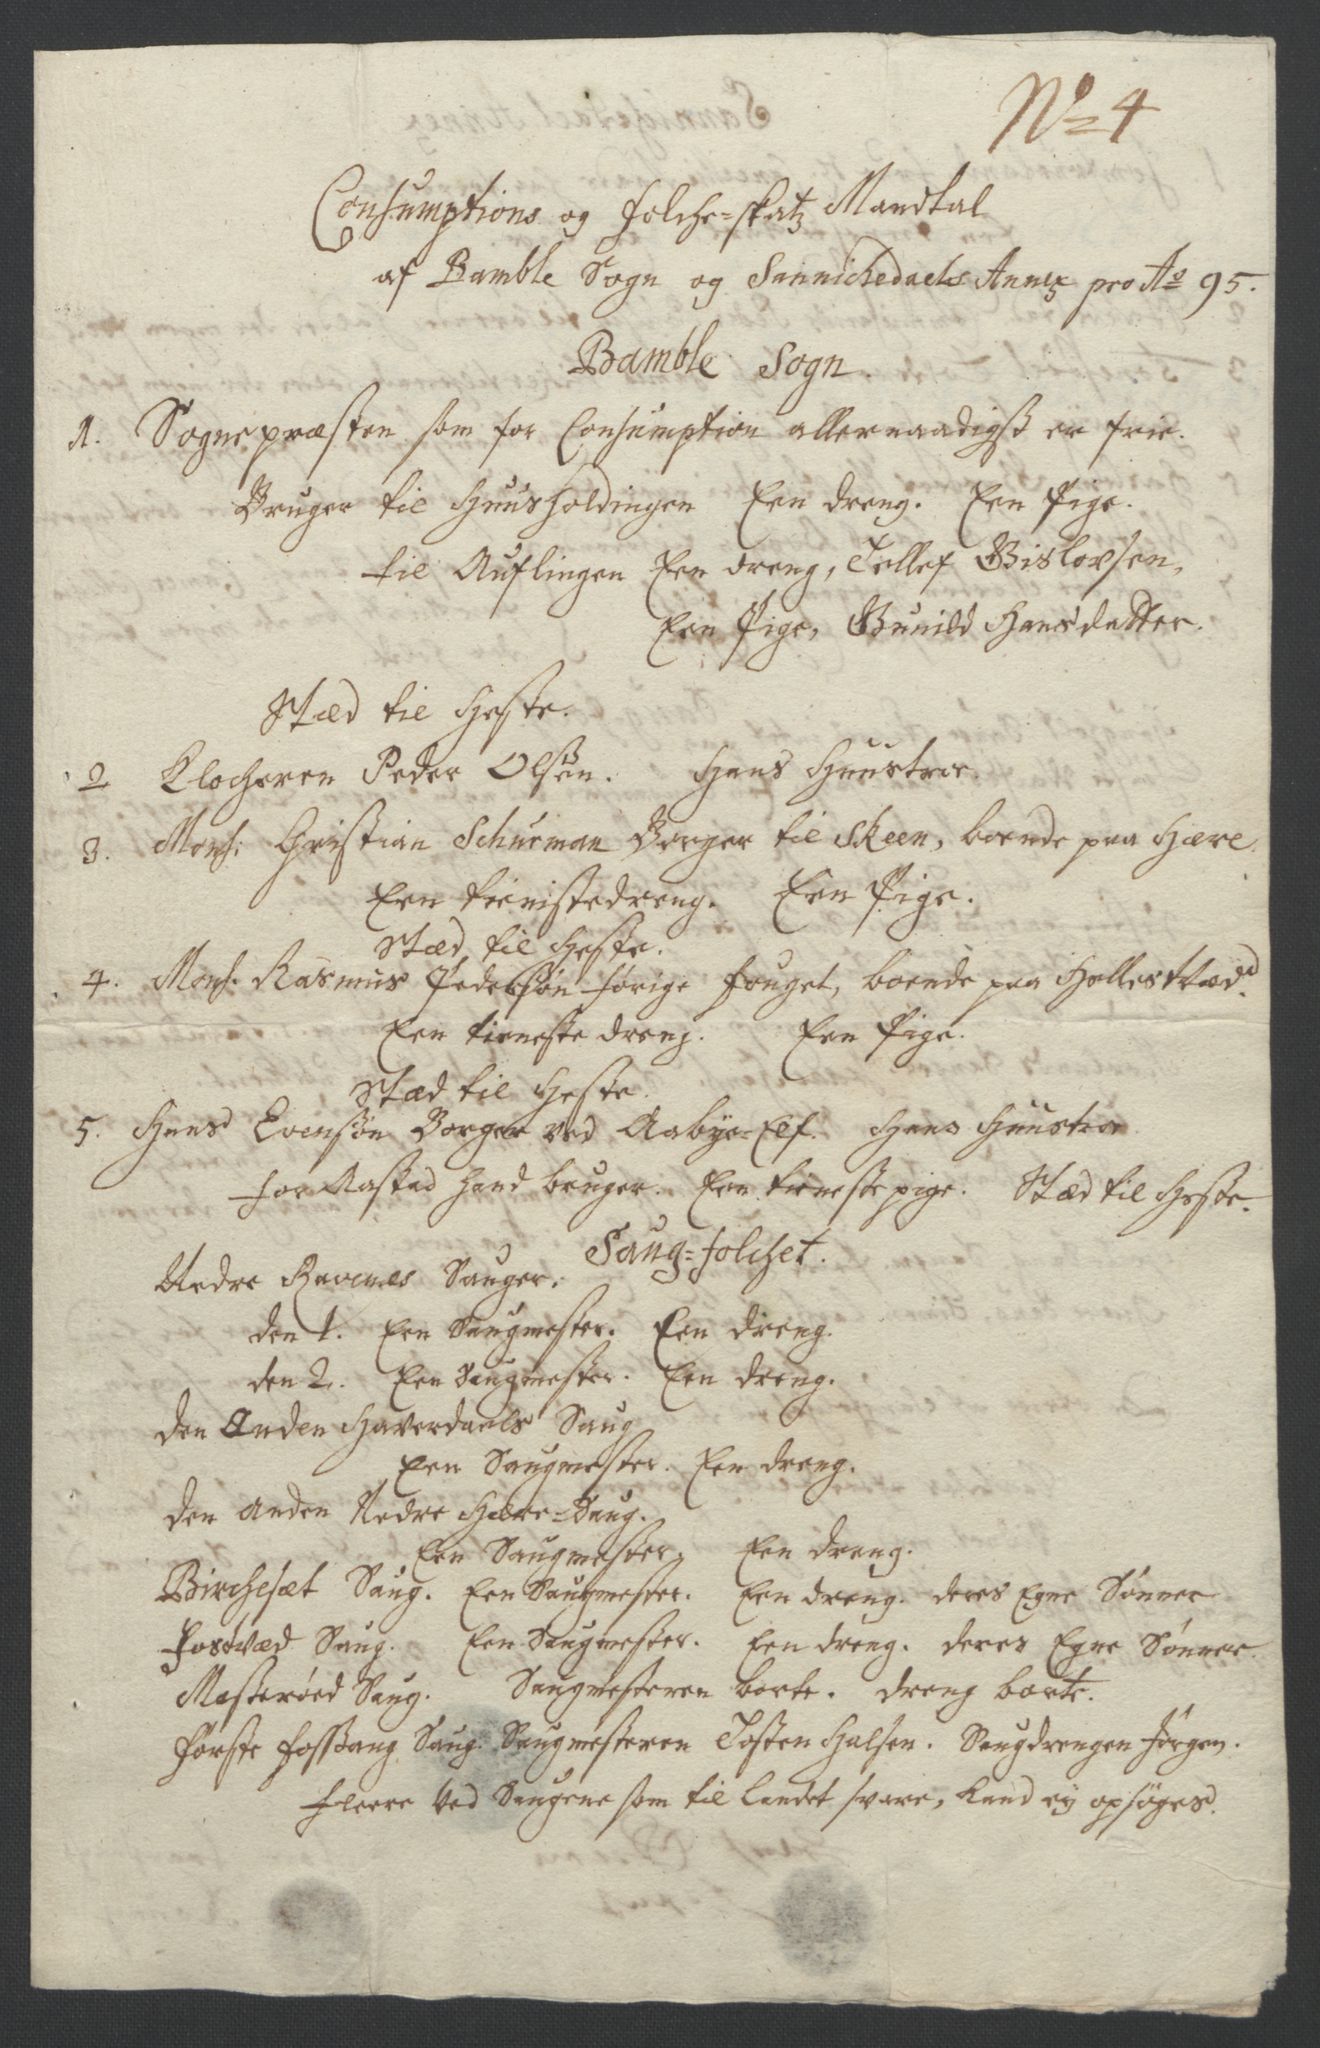 No 4
Consumptions og folche-skatz Mandtal
af Bamble Sogn og Sannichedaels Annex pro Ao 95.
Bamble Sogn.
1. Sognepræsten som for Consumption allernaadigst er frie.
Bruger til Huusholdingen Een dreng. Een Pige.
til Auflingen Een dreng, Tellef Gislovsen,
Een Pige, Gunild Hansdatter.
Stæd til Heste.
2 Klocheren Peder Olsøn. Hans Huustroe.
3. Mons: Christian Schurman Borger til Skeen, boende paa Hære.
Een tienistedreng. Een Pige.
Stæd til Heste.
4. Mons. Rasmus Pedersøn forige fouget, boende paa Hellestvæd.
Een tieneste dreng. Een Pige.
Stæd til Heste.
5. Hans Evensøn Borger ved Aabye-Elf. Hans Huustroe
for Rastad hand bruger. Een tieneste pige. Stæd til Heste.
Saug-folchet.
Nedre Ravenes Sauger.
den 1. Een Saugmester. Een dreng.
den 2. Een Saugmester. Een dreng.
den Anden Haverdaels Saug
Een Saugmester. Een dreng.
den anden Nedre Hære-Saug.
Een Saugmester. Een dreng.
Birchesæt Saug. Een Saugmester. Een dreng. deres Egne Sønner
Fosvæd Saug. Een Saugmester. Een dreng. deres Egne Sønner.
Masterøed Saug. Saugmesteren borte. dreng borte.
Første Fossang Saug. Saugmesteren Tosten Halsen. Saugdrengen Jørgen.
fleere ved Saugene som til landet svare, kand ey opsøges.